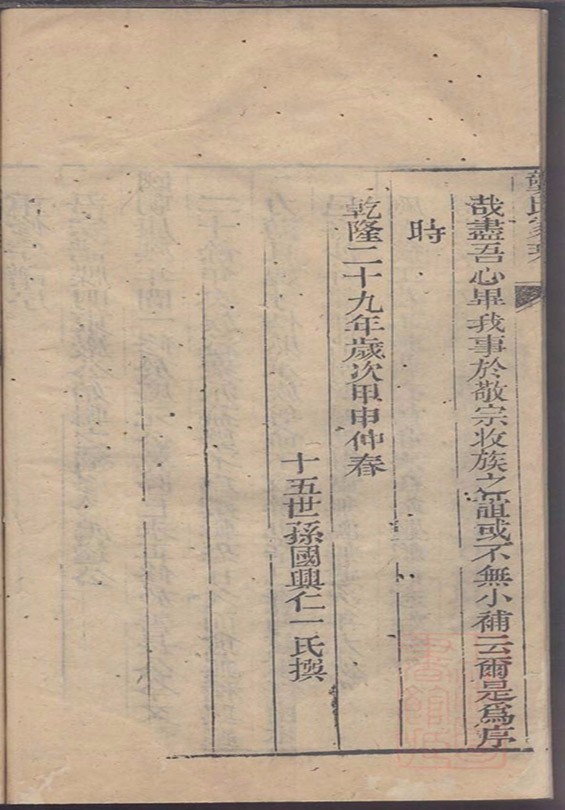 哉盡吾心畢我事於敬宗收族之誼或不無小補云爾是為序
時
乾隆二十九年歲次甲申仲春
十五世孫國興仁一氏撰